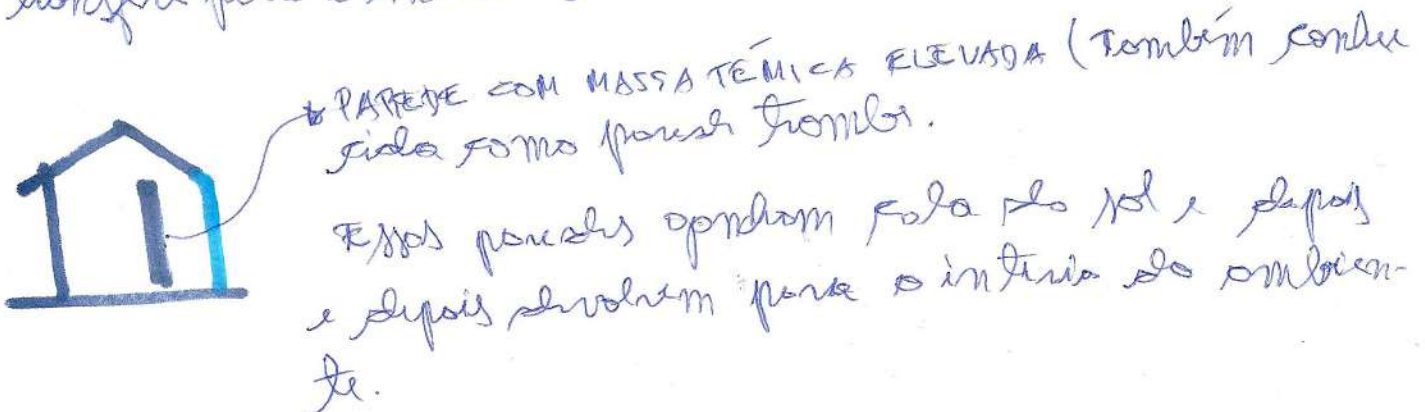 PAREDE COM MASSA TÉMICA ELEVADA (Também conhe
cida como parede trombe.
Essas paredes ganham calor do sol e depois
e depois devolvem para o interio do ambien-
te.